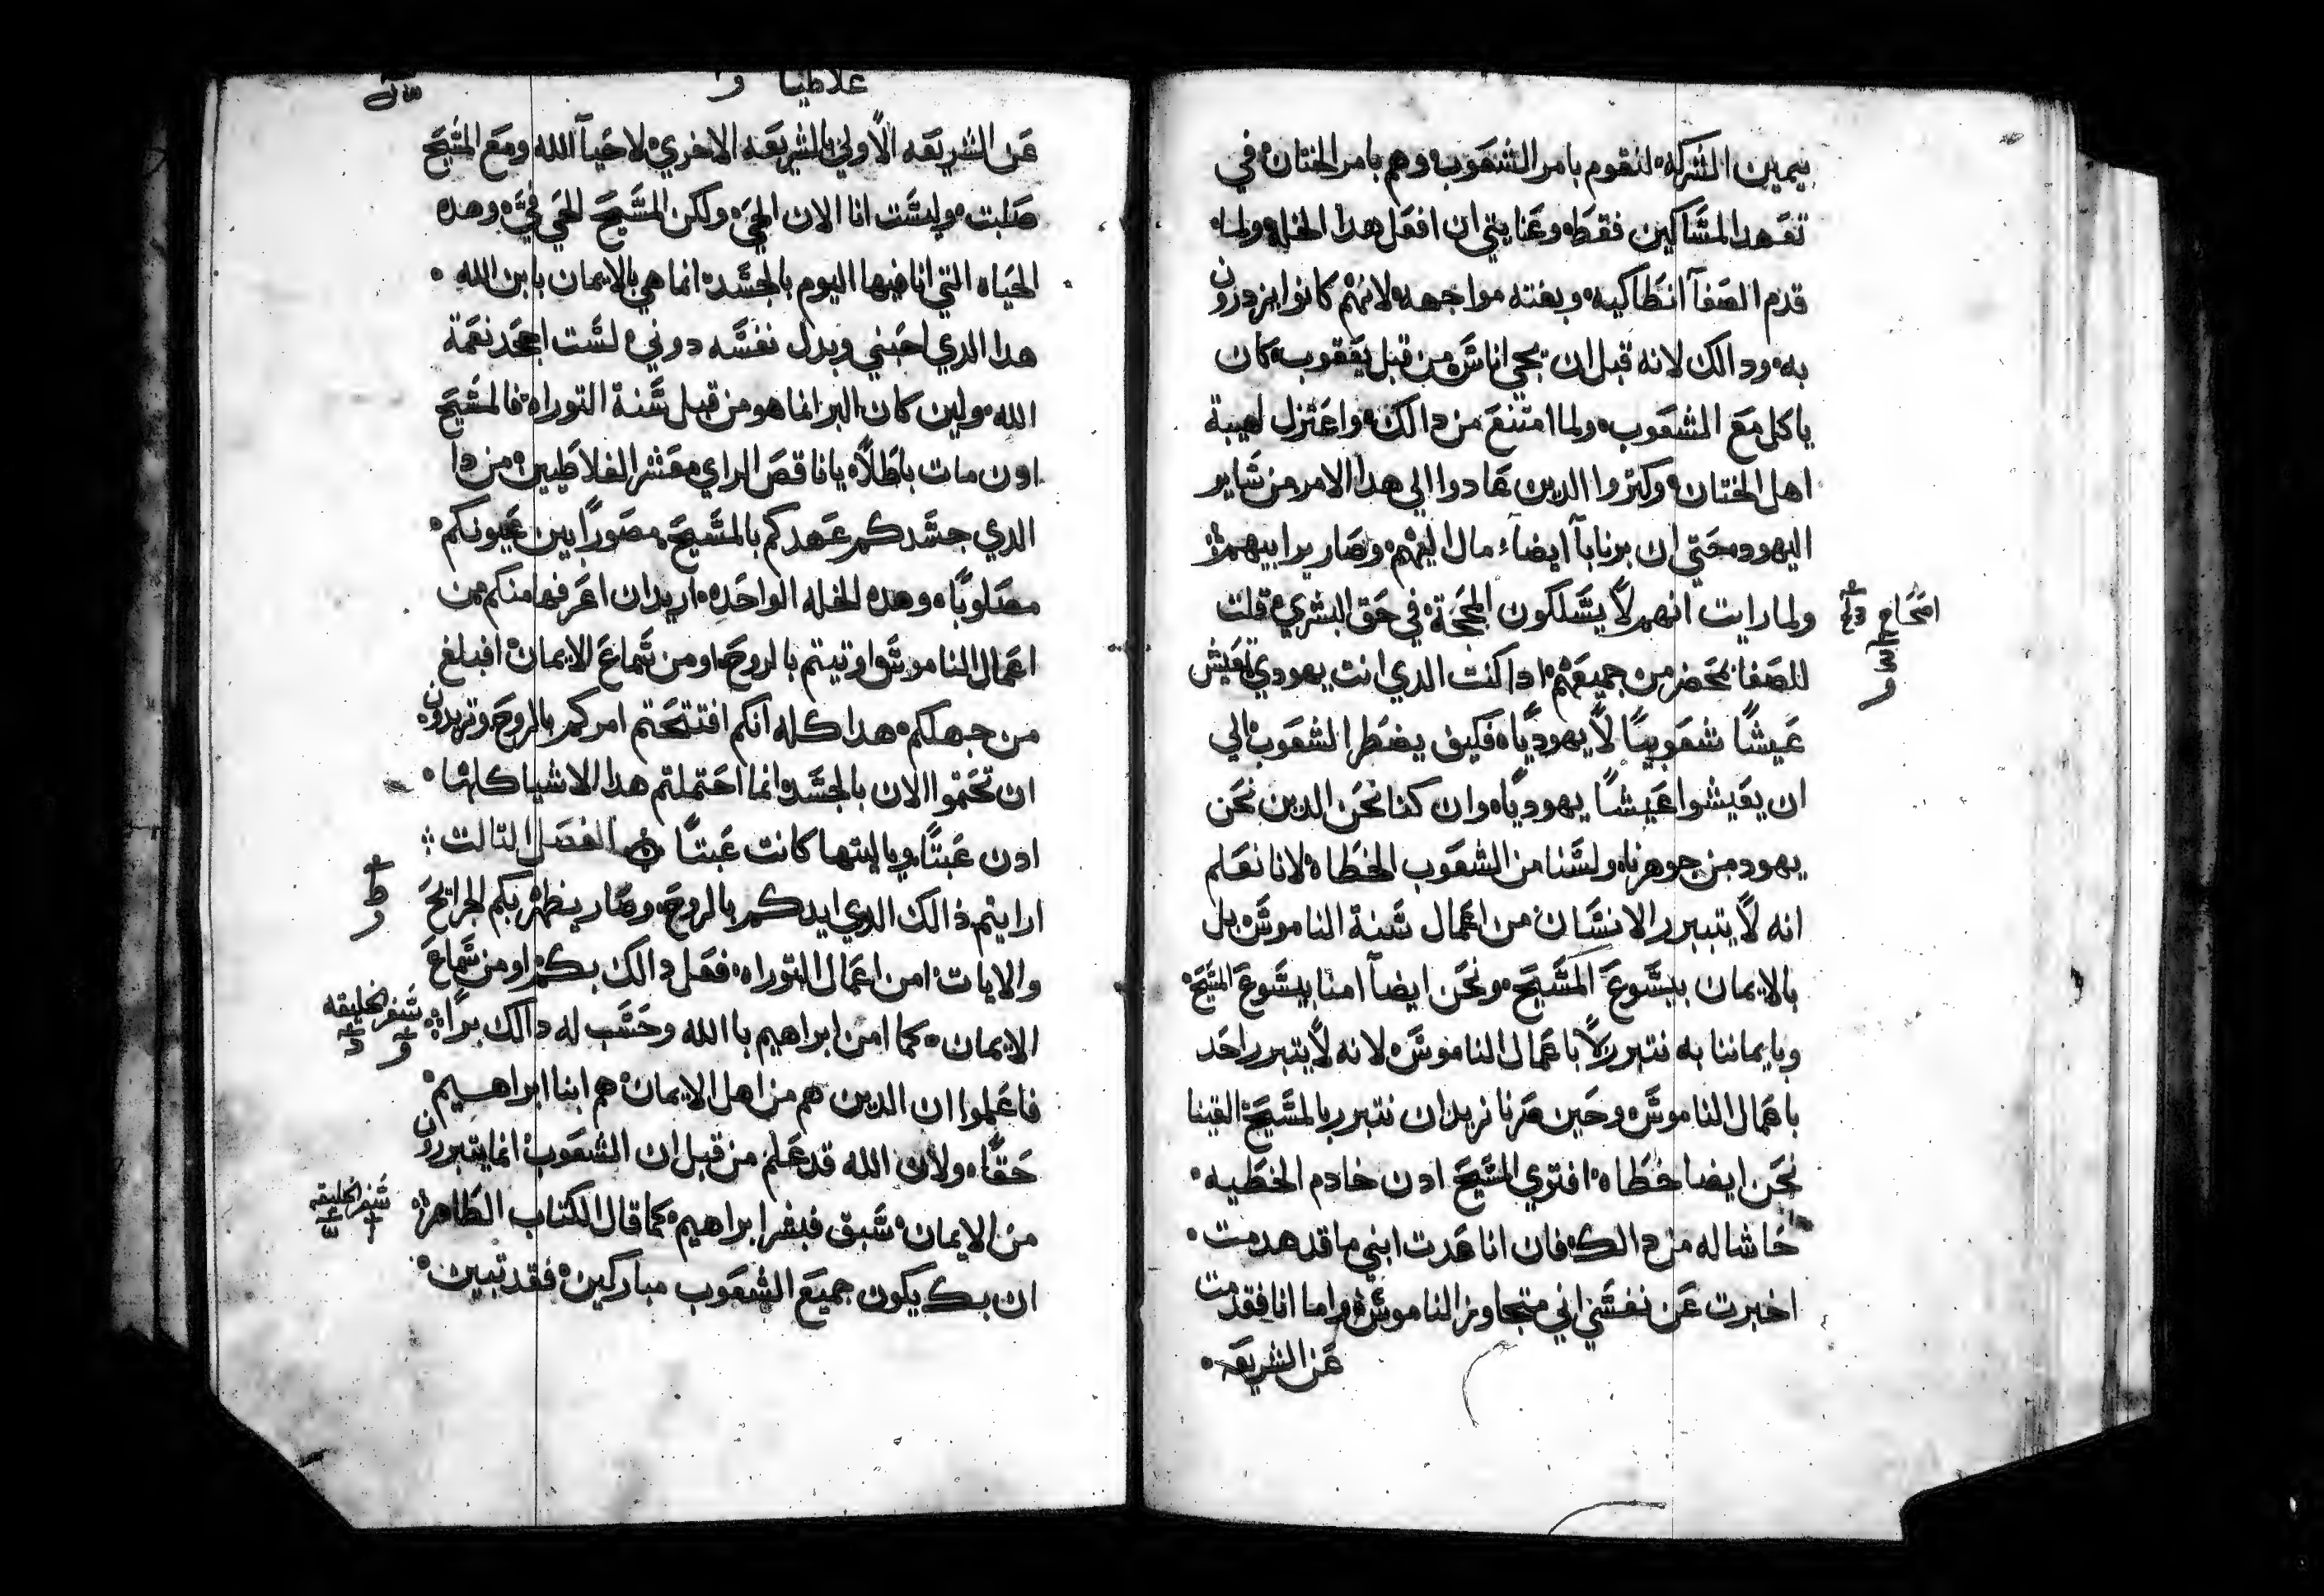 بيمين الشركه لنقوم بامر الشعوب وهم بامر الختان في
تعهد المساكين فقط وعنايتي ان افعل هدا الخله ولما
قدم الصفا انطاكيه وبخته مواجهه لانهم كانوا يزدرون
به ودالك لانه قبل ان يجي اناس من قبل يعقوب كان
ياكل مع الشعوب ولما امتنع من دالك واعتزل لهيبة
اهل الختان وكتروا الدين عادوا الي هدا الامر من ساير
اليهود حتي ان برنابا ايضا مال اليهم وصار يراييهم
ولما رايت انهم لا يسلكون المحجة في حق البشري قلت
للصفا بمحضر من جميعهم ادا كنت الدي انت يهودي تعيش
عيشا شعوبيا لا يهوديا فكيف يضطر الشعوب الي
ان يعيشوا عيشا يهوديا وان كنا نحن الدين نحن
يهود من جوهرنا ولسنا من الشعوب الخطاه لانا نعلم
انه لا يتبرر الانسان من اعمال سنة الناموس بل
بالايمان بيسوع المسيح ونحن ايضا امنا بيسوع المسيح
وبايماننا به نتبرر لا باعمال الناموس لانه لا يتبرر احد
باعمال الناموس وحين صرنا نريد ان نتبرر بالمسيح القينا
نحن ايضا خطاه افتري المسيح ادن خادم الخطيه
حاشا له من دالك فان انا عدت ابني ما قد هدمت
اخبرت عن نفسي اني متجاوز الناموس واما انا فقد مت
عن الشريعه
غلاطيا
عن الشريعه الاولي بالشريعه الاخري لاحيا الله ومع المسيح
صلبت وليست انا الان الحي ولكن المسيح الحي في وهده
الحياه التي انا فيها اليوم بالجسد انما هي بالايمان بابن الله
هدا الدي احبني وبدل نفسه دوني لست اجحد نعمة
الله ولين كان البر انما هو من قبل سنة التوراه فالمسيح
ادن مات باطلا يا ناقص الراي معشر الغلاطيين من دا
الدي جسدكم عهدكم بالمسيح مصورا بين عيونكم
مصلوبا وهده الخله الواحده اريد ان اعرفها منكم من
اعمال الناموس اوتيتم بالروح او من سماع الايمان افبلغ
من جهلكم هدا كله انكم افتتحتم امركم بالروح وتريدون
ان تختموا الان بالجسد انما احتملتم هدا الاشيا كلها
ادن عبتا وياليتها كانت عبتا الفصل التالت
ارايتم ذالك الدي ايدكم بالروح وصار يظهر بكم الجرايح
والايات امن اعمال التوراه فعل دالك بكم او من سماع
الايمان كما امن ابراهيم بالله وحسب له دالك برا
سفر الخليقه
فاعلموا ان الدين هم من اهل الايمان هم ابنا ابراهيم
حقا ولان الله قد علم من قبل ان الشعوب انما يتبررون
من الايمان سبق فبشر ابراهيم كما قال الكتاب الطاهر
سفر الخليقه
ان بك يكون جميع الشعوب مباركين فقد تبين